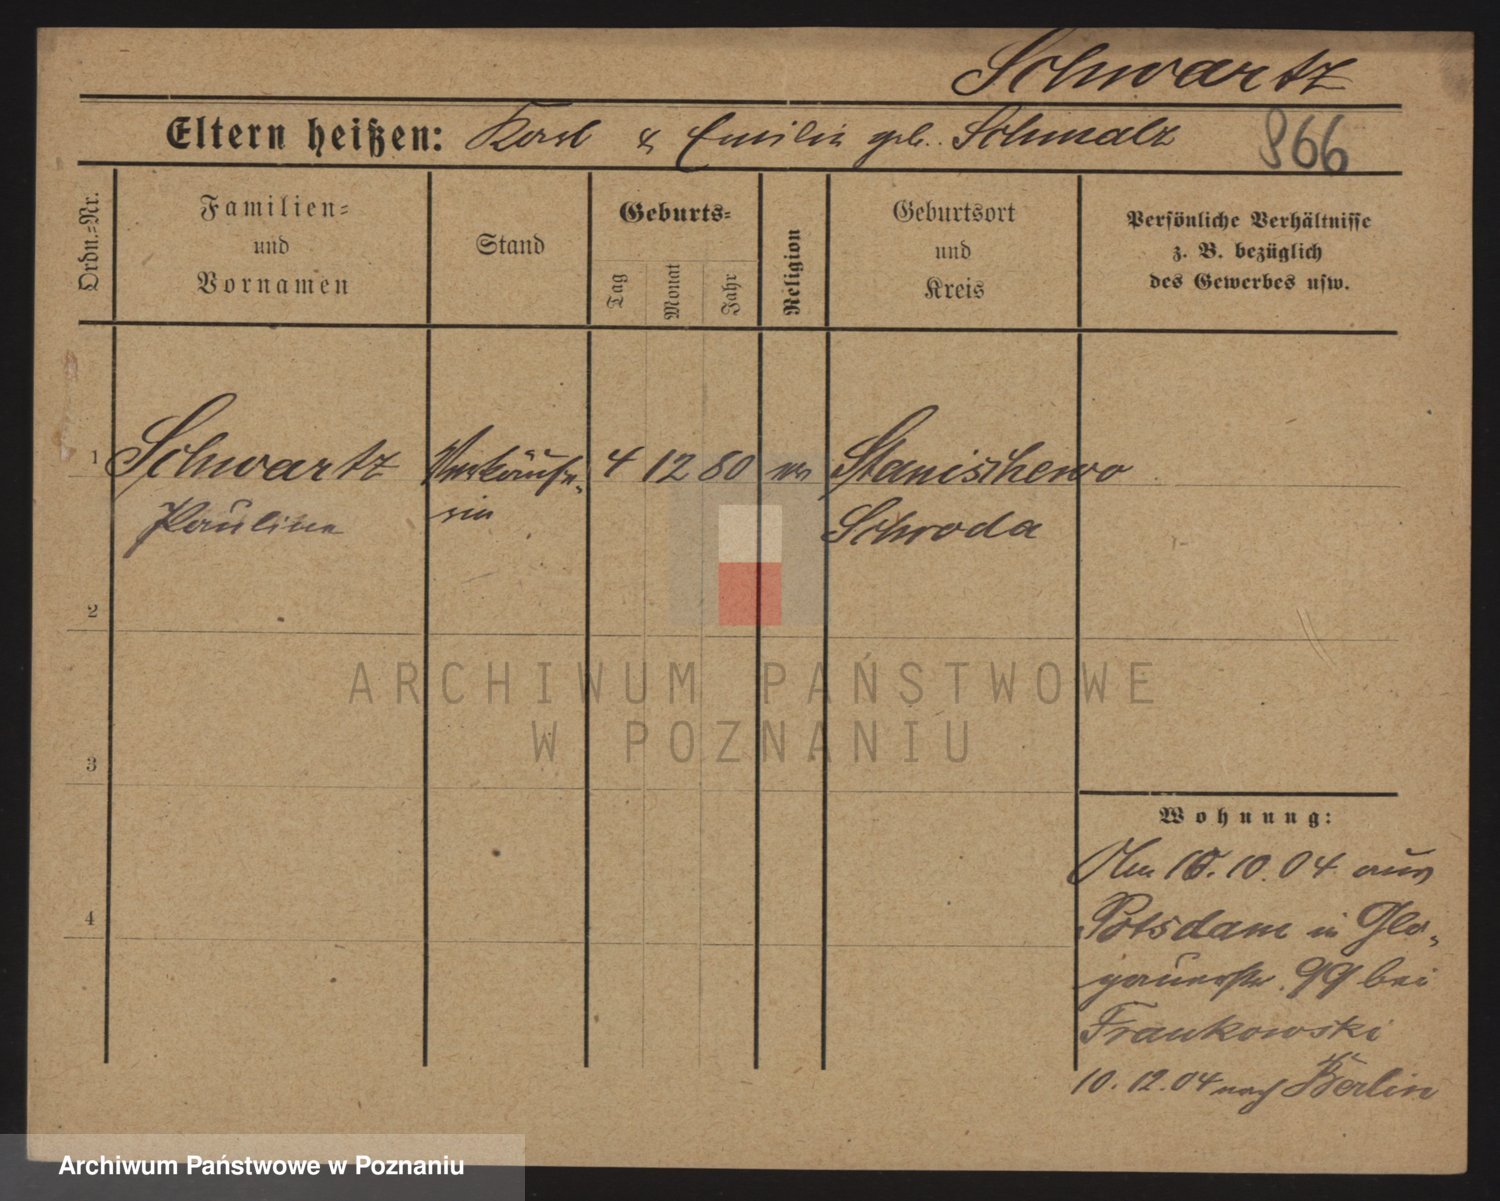 Schwartz
Eltern heißen: Karl & Emilie geb. Schmalz
966
Ordn.=Nr.
Familien=
und
Vornamen
Stand
Geburts=
Tag
Monat
Jahr
Religion
Geburtsort
und
Kreis
Persönliche Verhältnisse
z. B. bezüglich
des Gewerbes usw.
1 Schwartz Verkäufe- 4 12 80 ev Stanischewo
Pauline rin Schroda
2
3
4
Wohnung:
Am 10.04 aus
Potsdam in Glo-
gauerstr. 99 bei
Frankowski
10.12.04 nach Berlin
ARCHIWUM PAŃSTWOWE
W POZNANIU
Archiwum Państwowe w Poznaniu